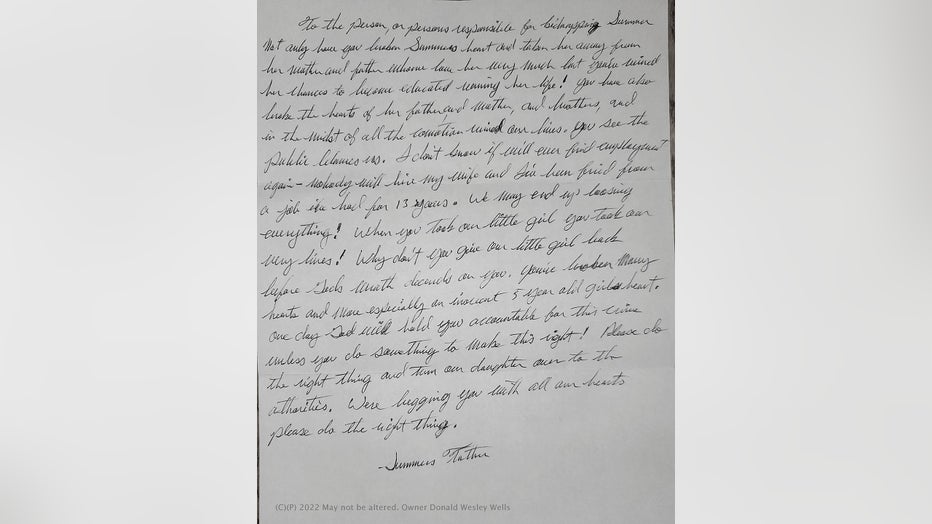 To the person, or persons responsible for kidnapping Summer
Not only have you broken Summers heart and taken her away from
her mother and father whome love her very much but you've ruined
her chances to become educated running her life! You have also
broke the hearts of her father, and mother, and brothers, and
in the midst of all the comotion ruined our lives. You see the
public blames us. I don't know if will ever find employment
again - nobody will hire my wife and I've been fired from
a job i've had for 13 years. We may end up loosing
everything! When you took our little girl you took our
very lives! Why don't you give our little girl back
before Gods wrath decends on you. You've broken many
hearts and more especially an inocent 5 year old girls heart.
One day God will hold you accountable for this crime
unless you do something to make this right! Please do
the right thing and turn our daughter over to the
athorities. Were begging you with all our hearts
please do the right thing.
-Summers Father
(C)(P) 2022 May not be altered. Owner Donald Wesley Wells